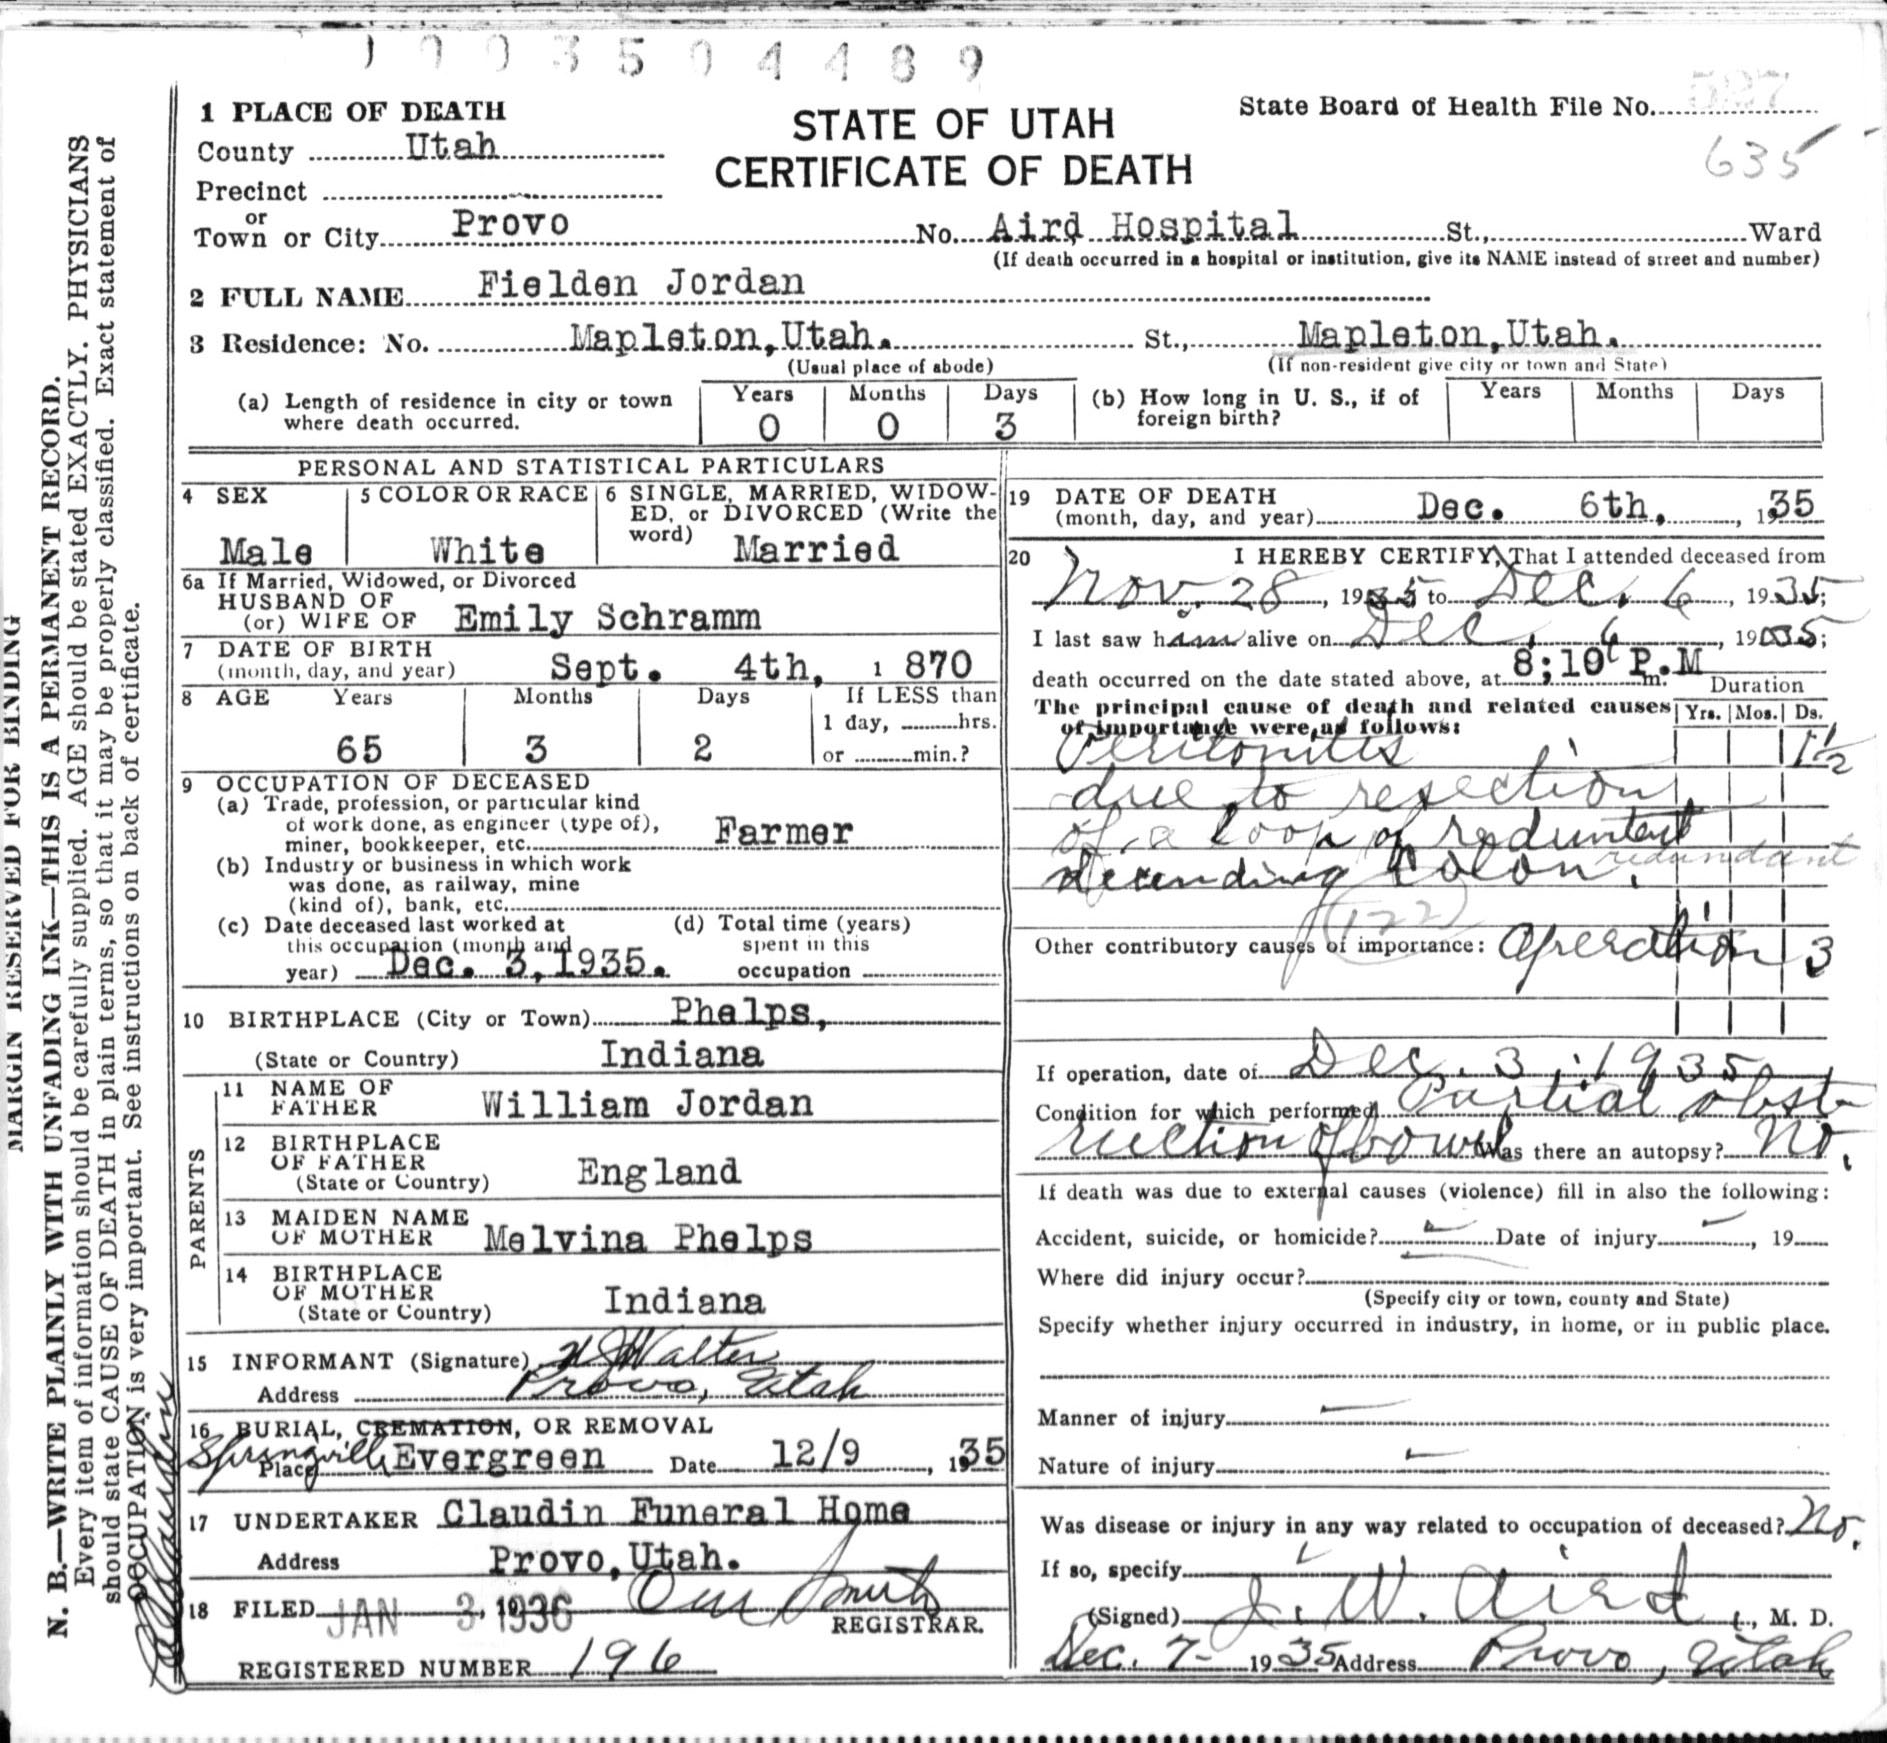 1003504489
1 PLACE OF DEATH
STATE OF UTAH
CERTIFICATE OF DEATH
State Board of Health File No. 527
635
County Utah
Precinct
or
Town or City Provo No. Aird Hospital St., Ward
(If death occurred in a hospital or institution, give its NAME instead of street and number)
2 FULL NAME Fielden Jordan
3 Residence: No. Mapleton,Utah. St., Mapleton,Utah.
(Usual place of abode) (If non-resident give city or town and State)
(a) Length of residence in city or town where death occurred. Years 0 Months 0 Days 3
(b) How long in U. S., if of foreign birth? Years Months Days
PERSONAL AND STATISTICAL PARTICULARS
4 SEX Male
5 COLOR OR RACE White
6 SINGLE, MARRIED, WIDOW-
ED, or DIVORCED (Write the
word) Married
6a If Married, Widowed, or Divorced
HUSBAND OF
(or) WIFE OF Emily Schramm
7 DATE OF BIRTH
(month, day, and year) Sept. 4th, 1870
8 AGE Years Months Days If LESS than
1 day, hrs.
65 3 2 or min.?
9 OCCUPATION OF DECEASED
(a) Trade, profession, or particular kind
of work done, as engineer (type of),
miner, bookkeeper, etc. Farmer
(b) Industry or business in which work
was done, as railway, mine
(kind of), bank, etc.
(c) Date deceased last worked at
this occupation (month and
year) Dec. 3,1935.
(d) Total time (years)
spent in this
occupation
10 BIRTHPLACE (City or Town) Phelps,
(State or Country) Indiana
PARENTS
11 NAME OF
FATHER William Jordan
12 BIRTHPLACE
OF FATHER
(State or Country) England
13 MAIDEN NAME
OF MOTHER Melvina Phelps
14 BIRTHPLACE
OF MOTHER
(State or Country) Indiana
15 INFORMANT (Signature) Walter
Address Provo, Utah
16 BURIAL, CREMATION, OR REMOVAL
Springville
Place Evergreen Date 12/9, 1935
17 UNDERTAKER Claudin Funeral Home
Address Provo,Utah.
18 FILED JAN 3 1936 Smith
REGISTRAR.
REGISTERED NUMBER 196
19 DATE OF DEATH
(month, day, and year) Dec. 6th, 1935
20 I HEREBY CERTIFY, That I attended deceased from
Nov. 28, 1935 to Dec. 6, 1935;
I last saw him alive on Dec. 6, 1935;
death occurred on the date stated above, at 8;10 P.M m.
Duration
The principal cause of death and related causes
of importance were as follows:
Yrs. Mos. Ds.
Peritonitis 1 1/2
due to resection
of a loop of reduntant
decending Colon. redundant
(122)
Other contributory causes of importance: Operation 3
If operation, date of Dec. 3, 1935
Condition for which performed Partial obst-
ruction of bowel Was there an autopsy? No.
If death was due to external causes (violence) fill in also the following:
Accident, suicide, or homicide? Date of injury , 19
Where did injury occur?
(Specify city or town, county and State)
Specify whether injury occurred in industry, in home, or in public place.
Manner of injury
Nature of injury
Was disease or injury in any way related to occupation of deceased? No.
If so, specify
(Signed) J. W. Aird, M. D.
Dec. 7- 1935 Address Provo, Utah
MARGIN RESERVED FOR BINDING
N. B.—WRITE PLAINLY WITH UNFADING INK—THIS IS A PERMANENT RECORD.
Every item of information should be carefully supplied. AGE should be stated EXACTLY. PHYSICIANS
should state CAUSE OF DEATH in plain terms, so that it may be properly classified. Exact statement of
OCCUPATION is very important. See instructions on back of certificate.